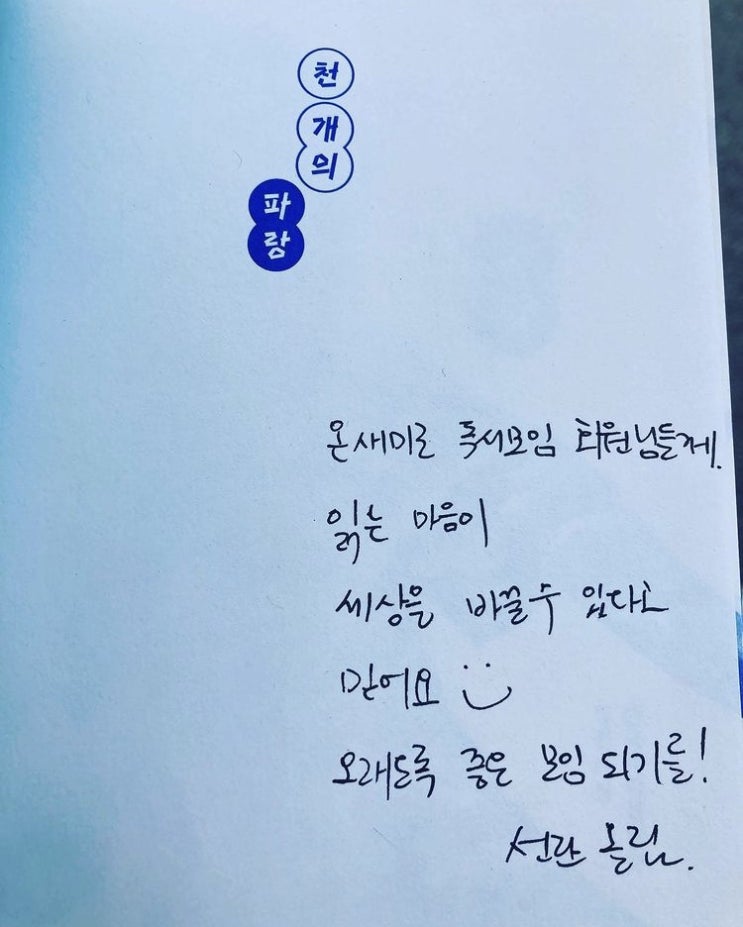 천
개의
파랑
온새미로 독서모임 회원님들께.
읽는 마음이
세상을 바꿀 수 있다고
믿어요
오래도록 좋은 모임 되기를!
선란 올림.